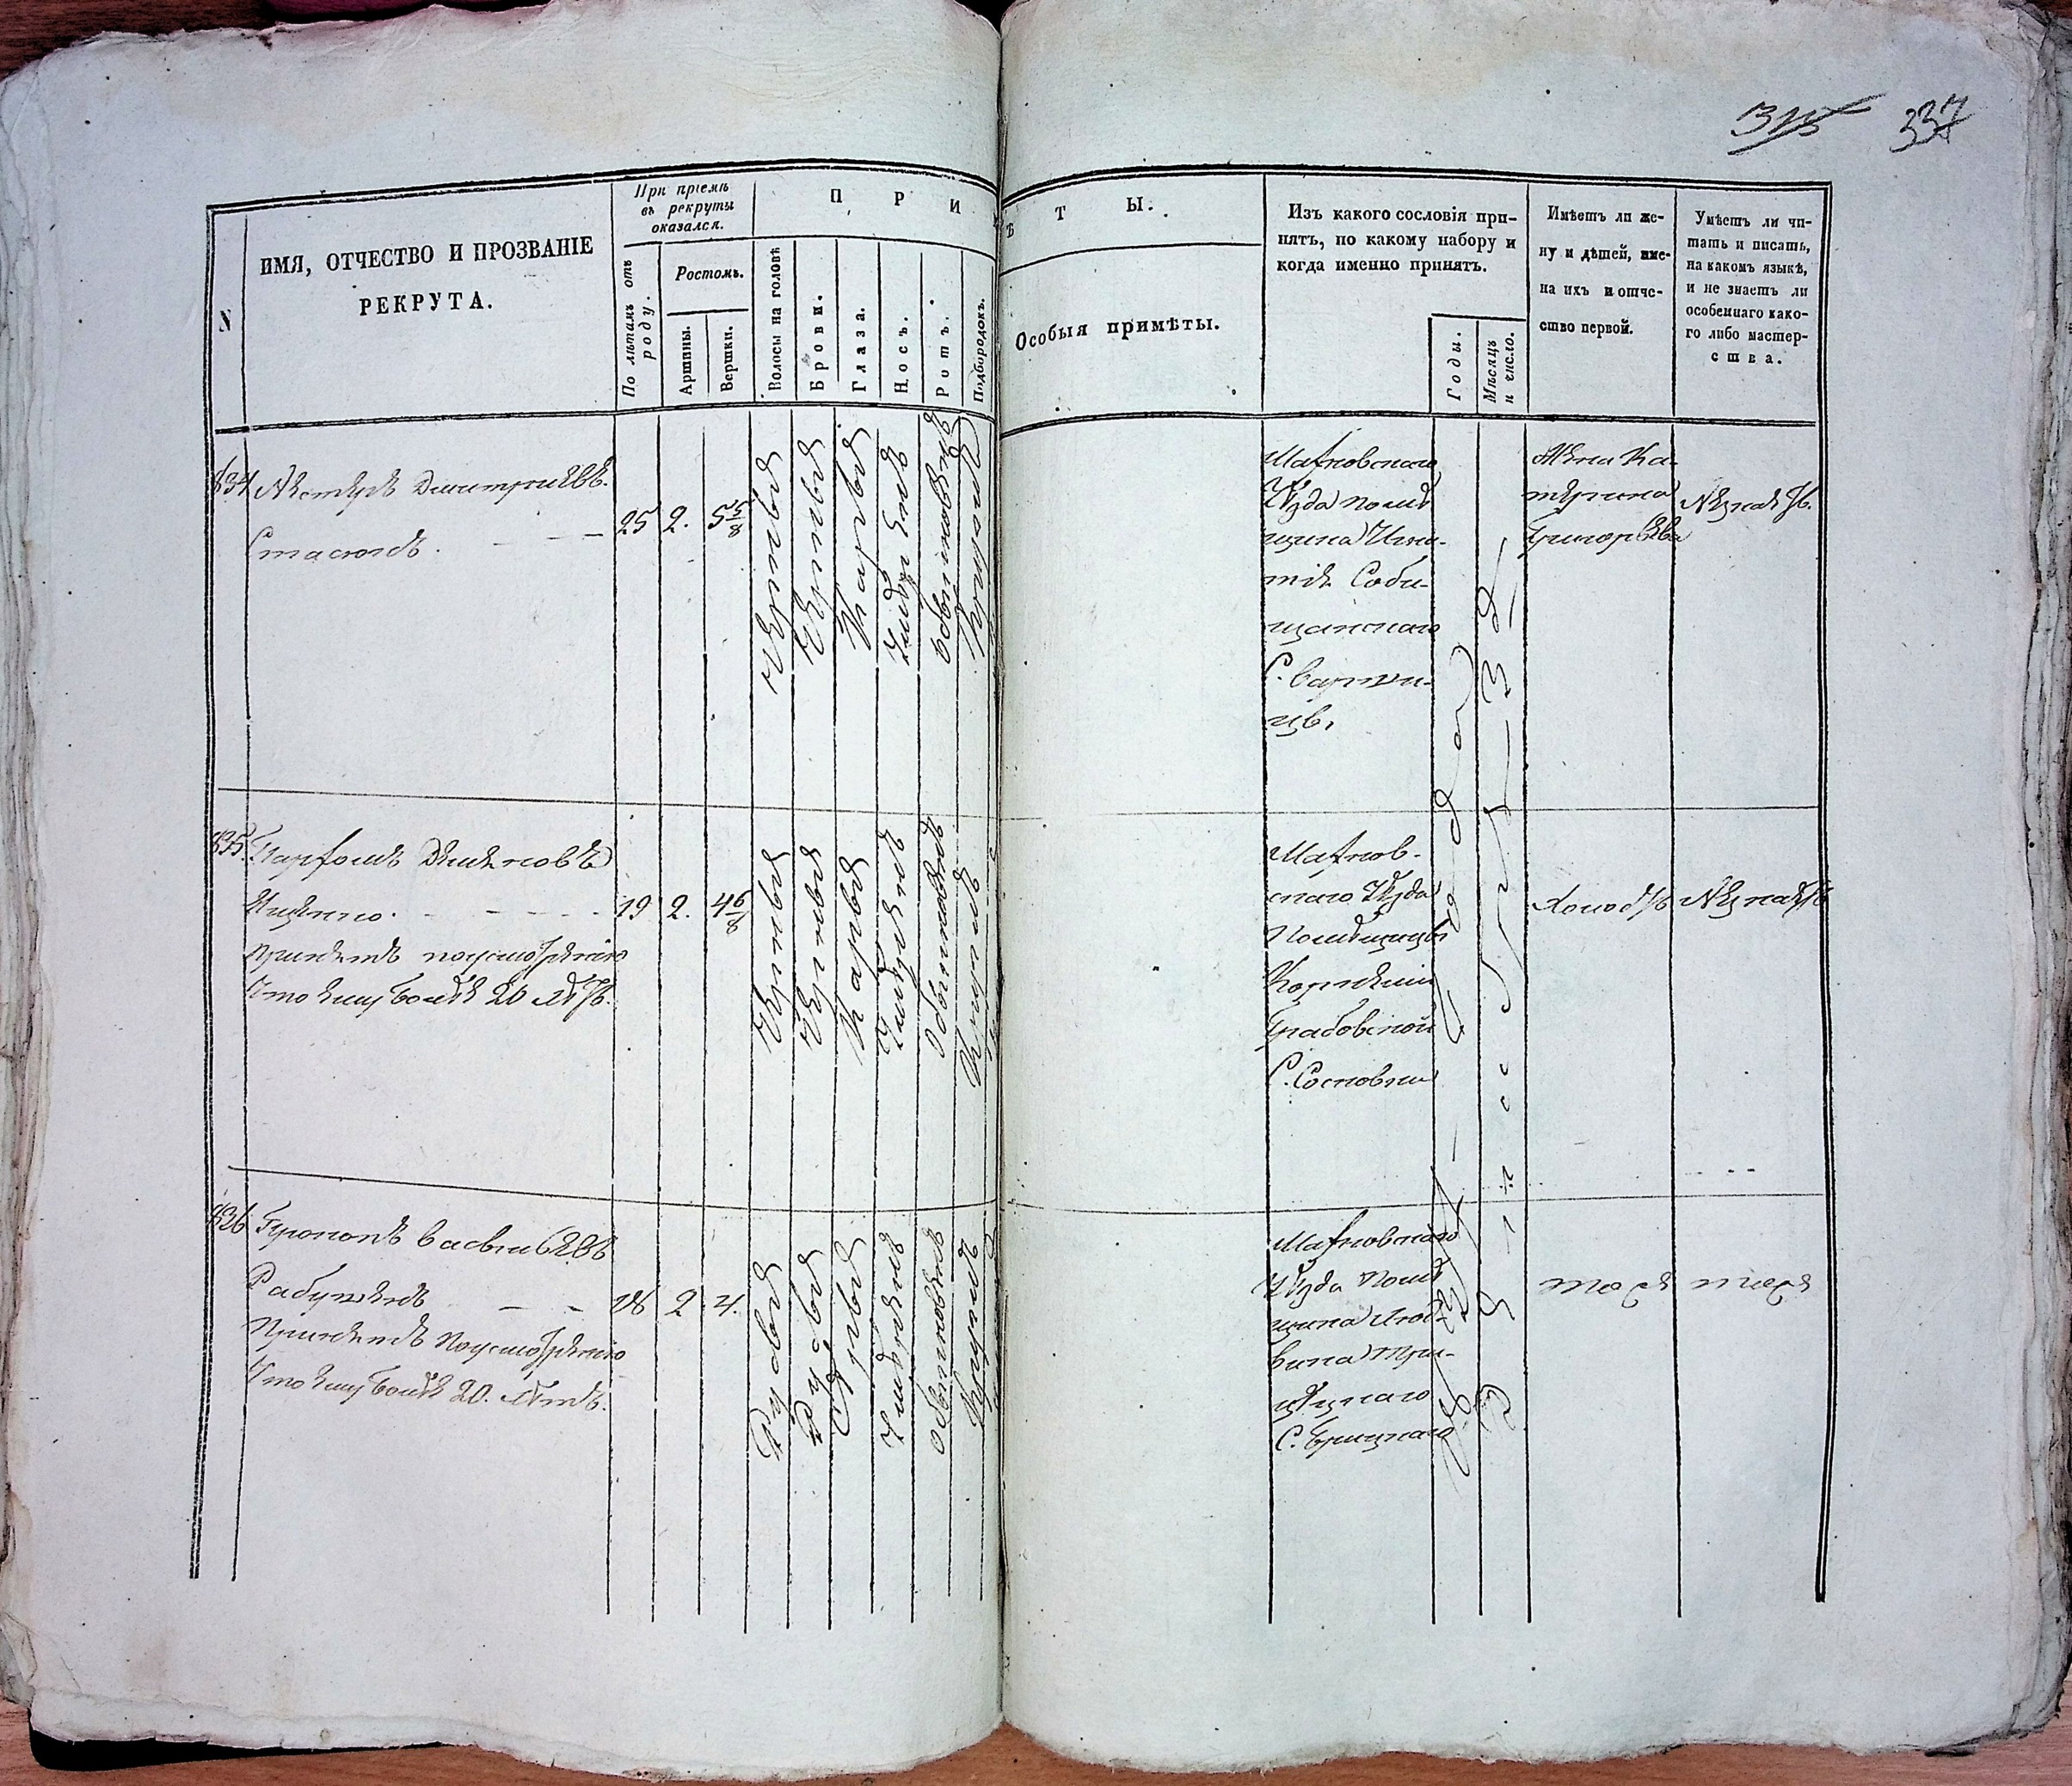 315 337
N
ИМЯ, ОТЧЕСТВО И ПРОЗВАНІЕ
РЕКРУТА.
При пріемѣ
въ рекруты
оказался.
По лѣтамъ отъ
роду.
Ростомъ.
Аршины.
Вершки.
П Р И
Волосы на головѣ
Брови.
Глаза.
Носъ.
Ротъ.
Подбородокъ.
Ѣ Т Ы.
Особыя примѣты.
Изъ какого сословія при-
нятъ, по какому набору и
когда именно принятъ.
Годы.
Мѣсяцъ
и число.
Имѣетъ ли же-
ну и дѣтей, име-
на ихъ и отче-
ство первой.
Умѣетъ ли чи-
тать и писать,
на какомъ языкѣ,
и не знаетъ ли
особеннаго како-
го либо мастер-
ства.
834 Нестеръ Дмитріевъ
Стасюкъ.
25 2. 5 5/8
Черныя
Черныя
Карія
Умѣренъ
обыкновенъ
Круглъ
Махновскаго
Уѣзда помѣ
щика Игна-
тія Соби-
щанскаго
С.
Жена Ка-
терина
Григорьева
Незнаетъ.
835. Парфомъ Деменовъ
Ищенко.
принятъ поусмотренію
Что ему болѣе 20 лѣтъ.
19 2. 4 6/8
Черныя
Черныя
Карія
Умѣренъ
Обыкновенъ
Круглъ
Махнов-
скаго Уѣзда
Помѣщицы
Грабовской
С. Сосновки
Холостъ Незнаетъ
836 Прокопъ Васильевъ
принятъ поусмотренію
Что ему болѣе 20. лѣтъ.
18 2. 4.
Русыя
Русыя
Сѣрыя
Умѣренъ
обыкновенъ
Круглъ
Махновскаго
Уѣзда помѣ
щика
С.
тоже тоже